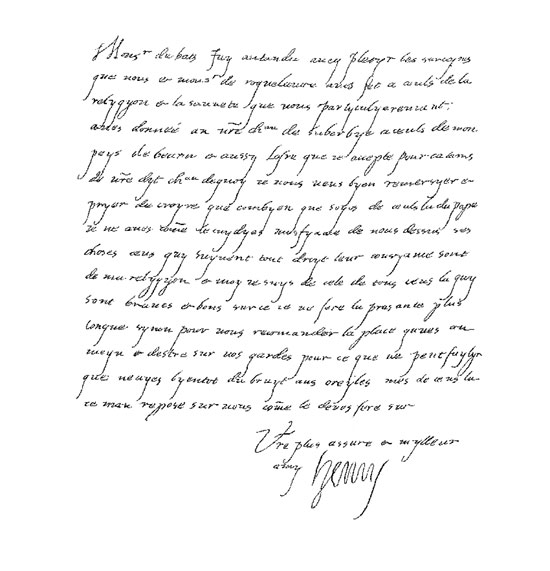 Monsr de bats Jay antandu avecq plesyr les servyces
que vous & monsr de roquelaure aves fet a ceuls de la
relygyon & la sauveté que vous partyculyeremant
aves donneé an vr̄e chau de suberbye a ceuls de mon
peys de bearn & aussy lofre que je acepte pour ce tams
de vr̄e dyt chau dequoy je vous veus byen remersyer &
pryer de croyre que combyen que soyes de ceus la du pape
je ne avoys cōme le cuydyes mesfyance de vous dessus ces
choses ceus quy suyvent tout droyt leur consyance sont
de ma relygyon & moy je suys de cele de tous ceus la quy
sont braves & bons sur ce je ne fere la presante plus
longue synon pour vous recomander la place quaves an
meyn & destre sur vos gardes pour ce que ne peut faylyr
que nayes byentot du bruyt aus oreylles mes de ceus la
je man repose sur vous cōme le deves fere sur
Vr̄e plus assure & mylleur
amy Henry